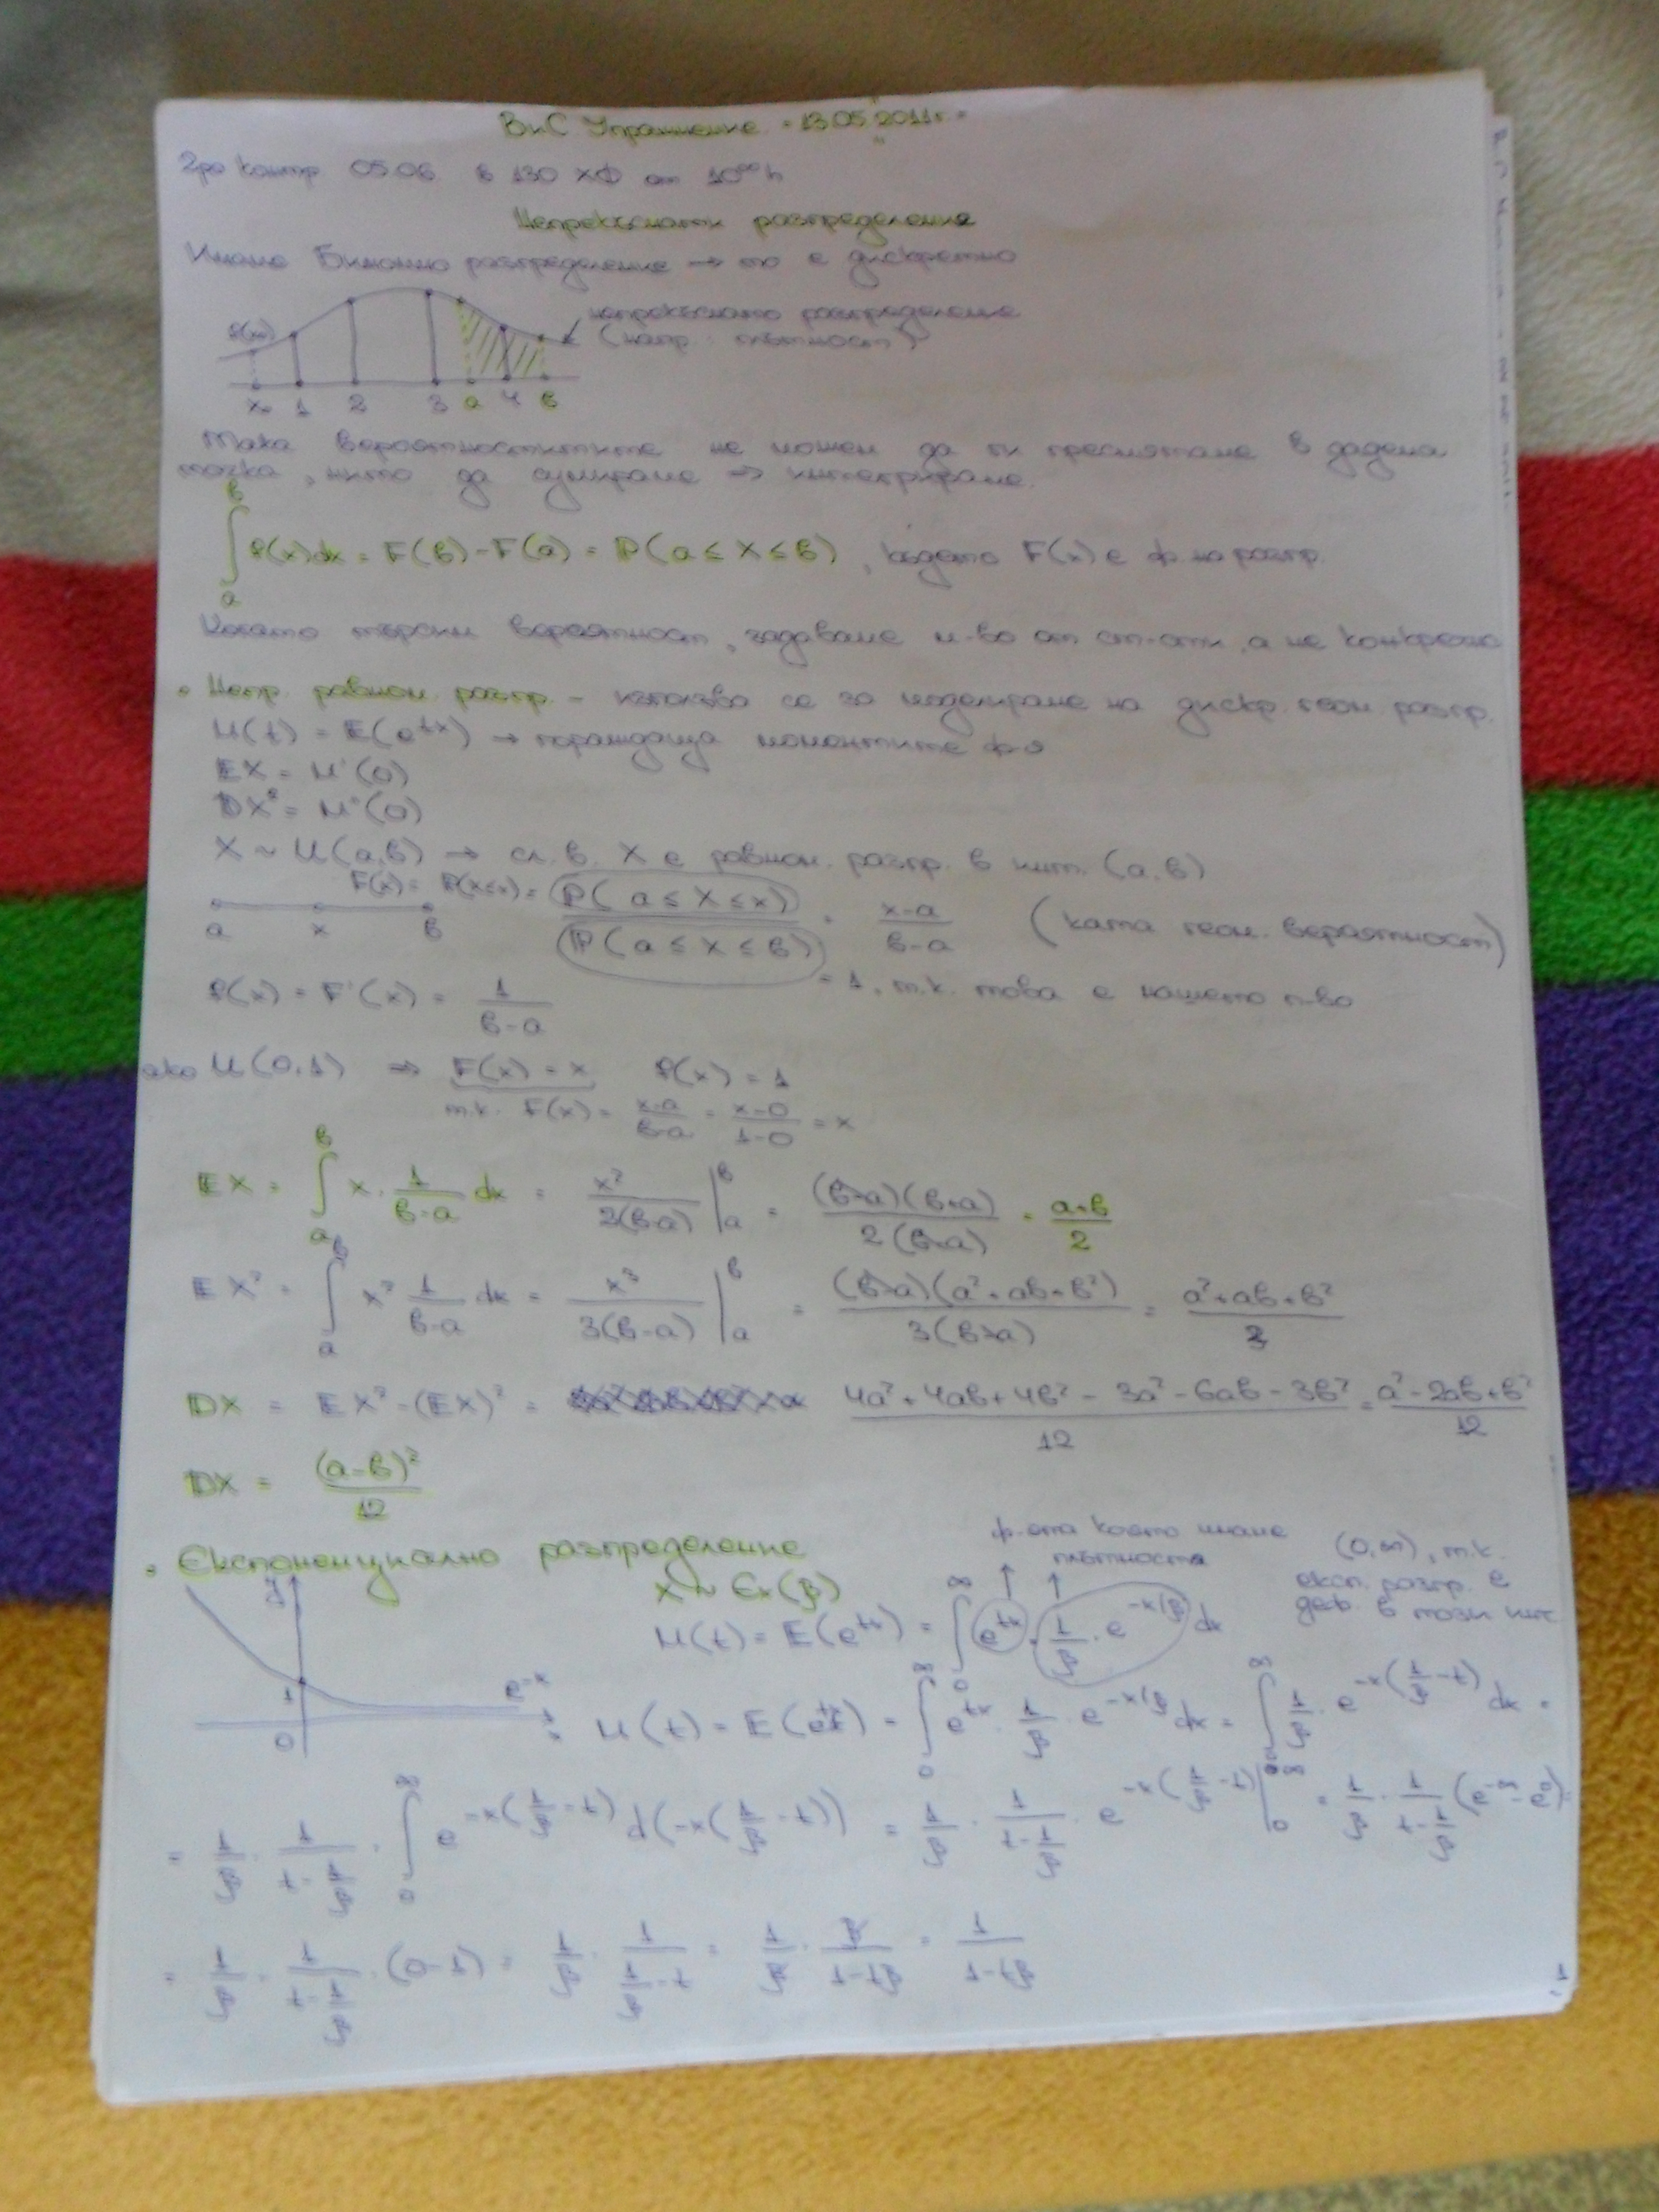 ВиС Упражнение - 13.05.2011г. -
2ро контр 05.06 в 130 ХФ от 10⁰⁰ h
Непрекъснати разпределения
Имаме Биномно разпределение → то е дискретно
непрекъснато разпределение
(напр. плътност)
x₀ 1 2 3 a 4 в
Така вероятностите не можем да ги пресмятаме в дадена
точка, нито да сумираме → интегрираме.
∫ₐᵇ f(x)dx = F(в) - F(a) = P(a ≤ X ≤ в), където F(x) е ф. на разпр.
Когато търсим вероятност, задаваме м-во от ст-сти, а не конкретно
• Непр. равном. разпр. - използва се за моделиране на дискр. геом. разпр.
M(t) = E(e^{tx}) → пораждаща моментите ф-я
EX = M'(0)
DX² = M''(0)
X ~ U(a,в) → сл. в. X е равном. разпр. в инт. (a,в)
a x в
F(x) = P(X≤x) = P(a ≤ X ≤ x) / P(a ≤ X ≤ в) = (x-a)/(в-a) (като геом. вероятност)
= 1, т.к. това е нашето п-во
f(x) = F'(x) = 1/(в-a)
ако U(0,1) ⇒ F(x) = x f(x) = 1
т.к. F(x) = (x-a)/(в-a) = (x-0)/(1-0) = x
EX = ∫ₐᵇ x · 1/(в-a) dx = x²/(2(в-a)) |ₐᵇ = (в-a)(в+a)/(2(в-a)) = (a+в)/2
EX² = ∫ₐᵇ x² 1/(в-a) dx = x³/(3(в-a)) |ₐᵇ = (в-a)(a²+aв+в²)/(3(в-a)) = (a²+aв+в²)/3
DX = EX² - (EX)² = (4a²+4aв+4в² - 3a² - 6aв - 3в²)/12 = (a² - 2aв + в²)/12
DX = (a-в)²/12
• Експоненциално разпределение
X ~ Ex(β)
ф-ята която имаме
плътността
(0,∞), т.к.
експ. разпр. е
деф. в този инт.
M(t) = E(e^{tx}) = ∫₀^∞ e^{tx} · 1/β · e^{-x/β} dx
y 1 0 e^{-x}
M(t) = E(e^{tx}) = ∫₀^∞ e^{tx} · 1/β · e^{-x/β} dx = ∫₀^∞ 1/β · e^{-x(1/β - t)} dx =
= 1/β · 1/(t - 1/β) · ∫₀^∞ e^{-x(1/β - t)} d(-x(1/β - t)) = 1/β · 1/(t - 1/β) · e^{-x(1/β - t)} |₀^∞ = 1/β · 1/(t - 1/β) (e^{-∞} - e⁰) =
= 1/β · 1/(t - 1/β) · (0 - 1) = 1/β · 1/(1/β - t) = 1/β · β/(1-tβ) = 1/(1-tβ)
1